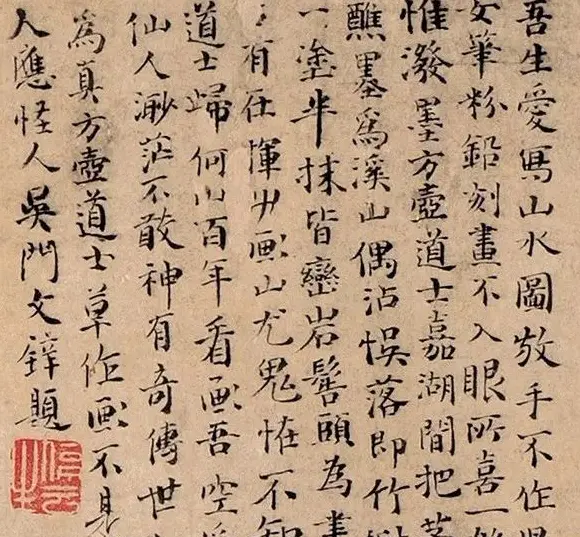 吾生愛寫山水圖敢手不作
女筆粉鉛刻畫不入眼所喜一
惟潑墨方壺道士嘉湖間把
醮墨為溪山偶沾悮落即竹
一塗半抹皆巒岩髻頤為
有在揮中畫山尤鬼怪不知
道士歸何山百年看畫吾空
仙人渺茫不敢神有奇傳世
為真方壺道士草作畫不
人應怪人吳門文鐸題